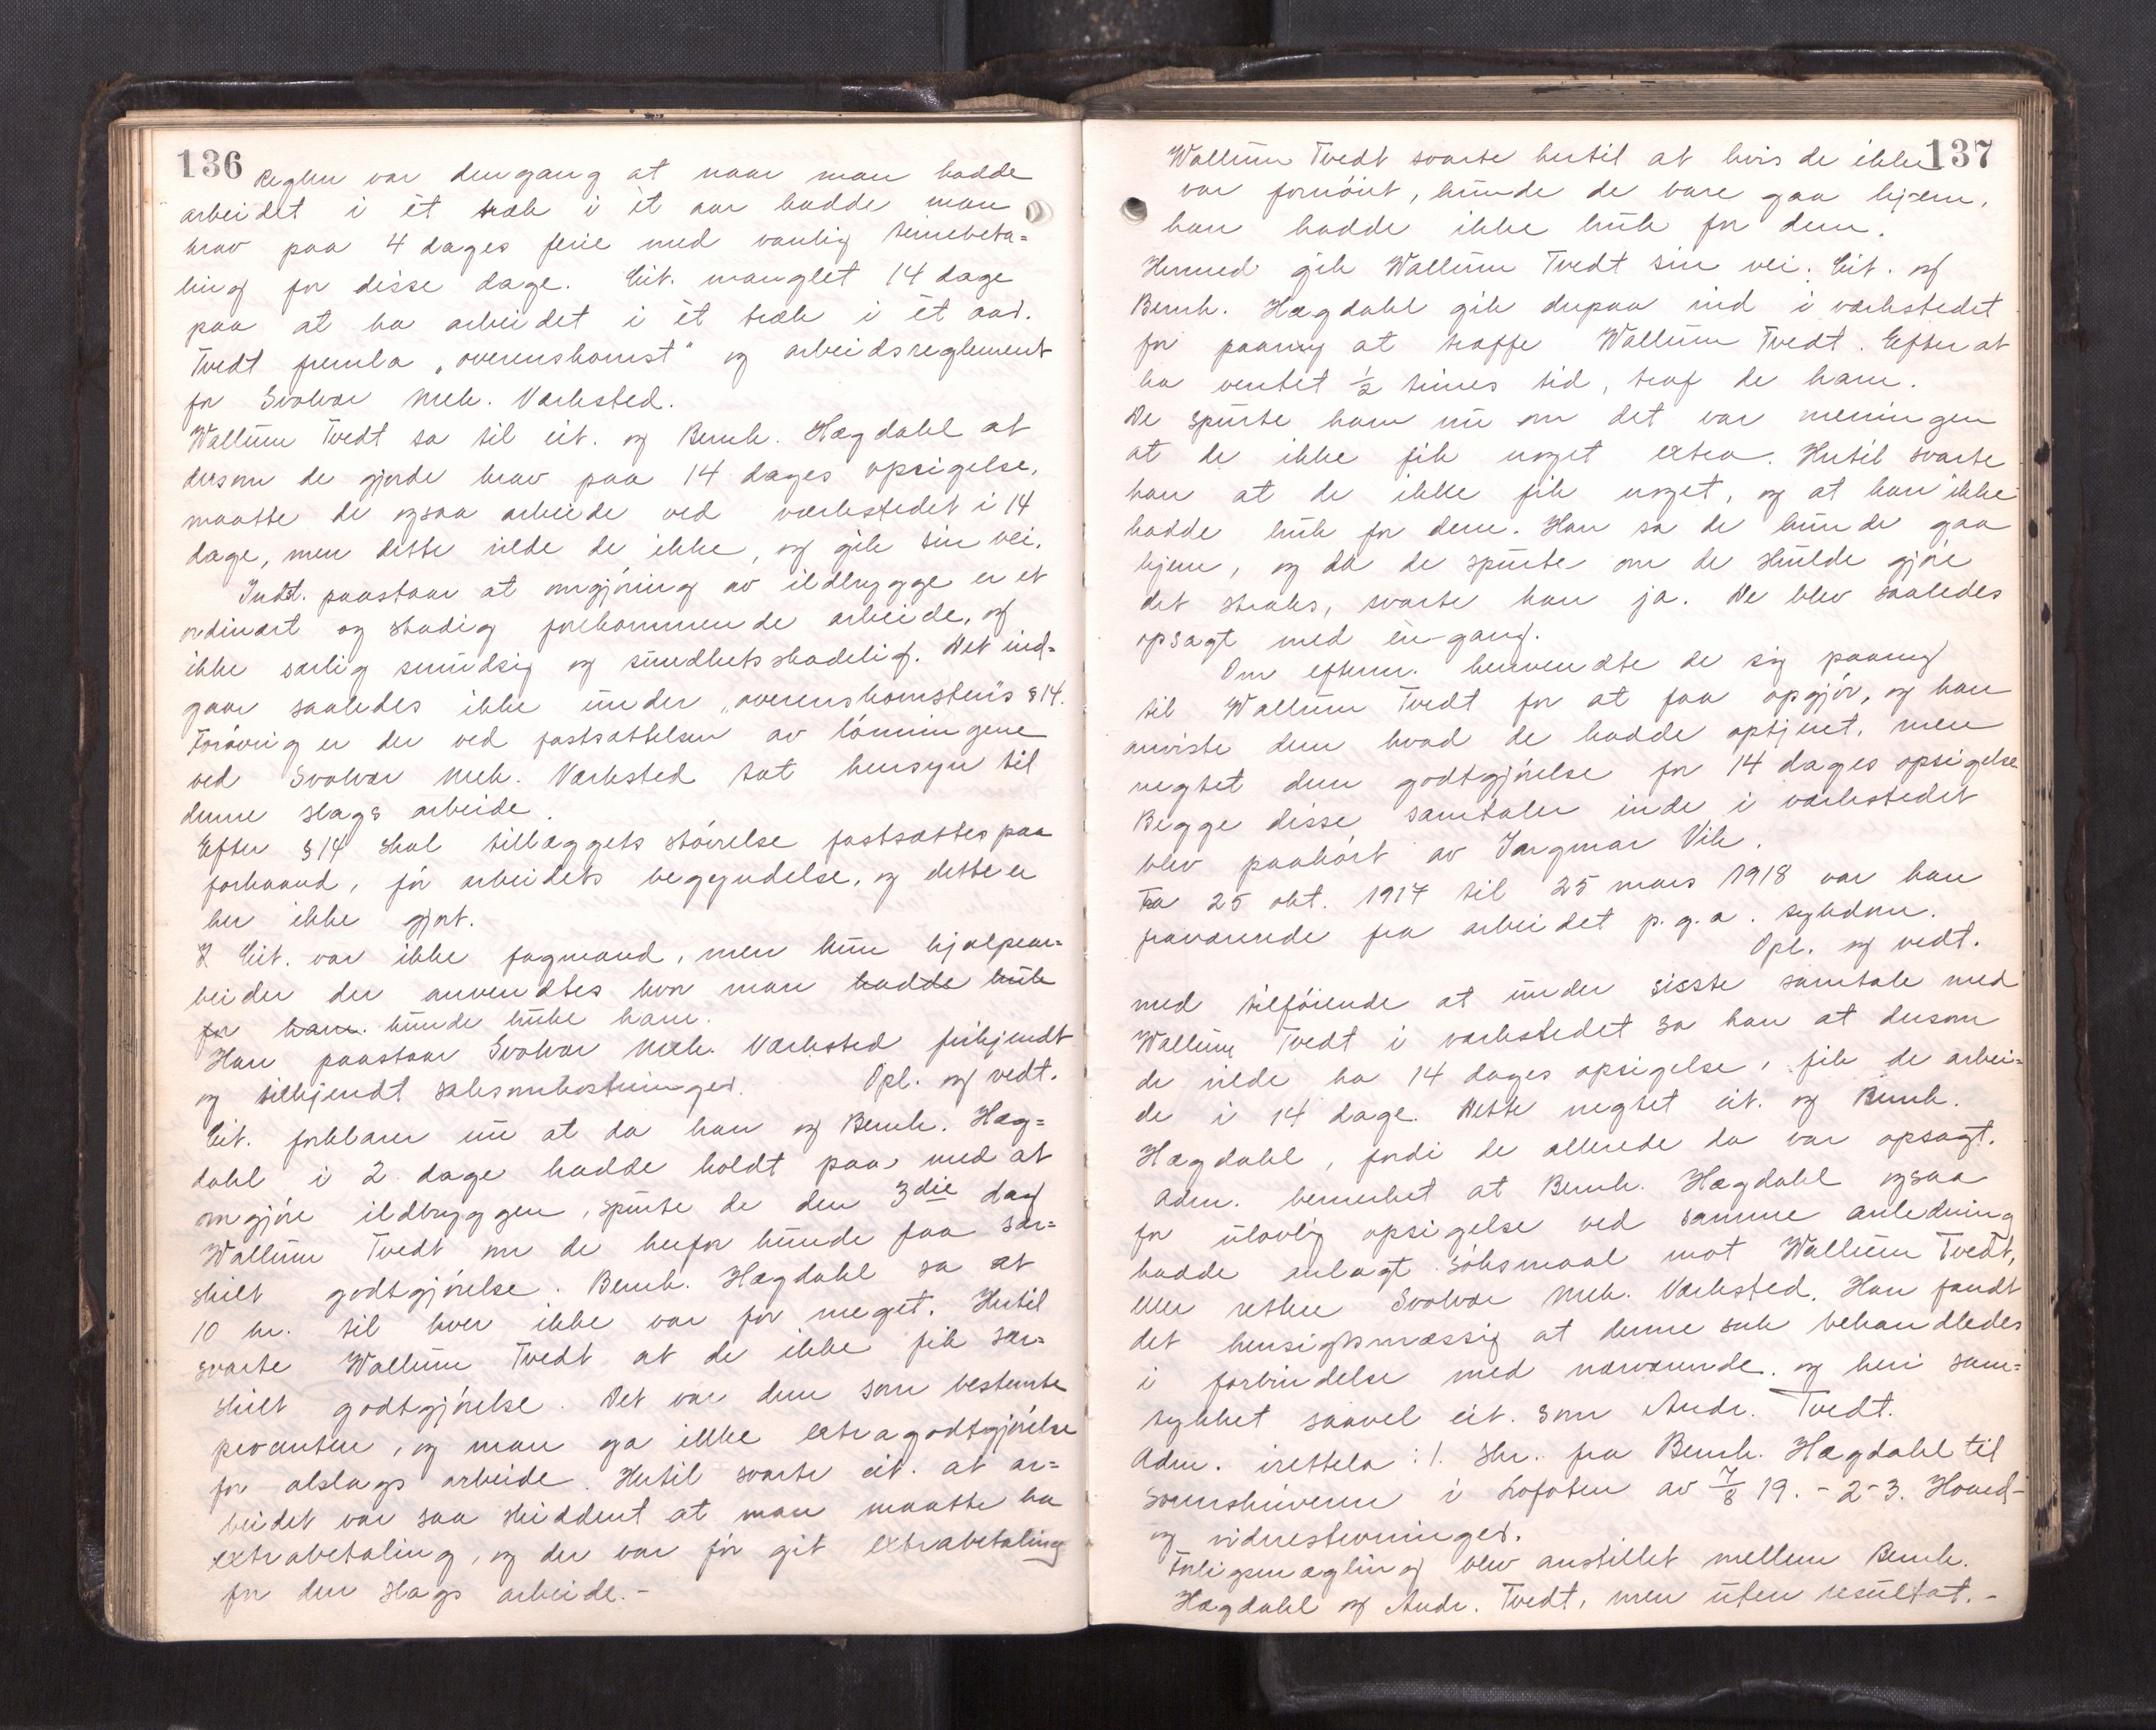 136
Reglen var dengang at naar man hadde
arbeidet i èt træk i èt aar hadde man
krav paa 4 dages ferie med vanlig timebeta=
ling for disse dage. Cit. manglet 14 dage
paa at ha arbeidet i èt træk i èt aar.
Tvedt fremla „overenskomst“ og arbeidsreglement
for Svolvær mek. Verksted.
Wallum Tvedt sa til cit. og Bernh. Hægdahl at
dersom de gjorde krav paa 14 dages opsigelse,
maatte de ogsaa arbeide ved verkstedet i 14
dage, men dette vilde de ikke, og gik sin vei.
Indst. paastaar at omgjøring av ildbrygge er et
ordinært og stadig forekommende arbeide, og
ikke særlig smudsig og sundhetsskadelig. Det ind=
gaar saaledes ikke under „overenskomsten's § 14.
Forøvrig er der ved fastsættelsen av lønningene
ved Svolvær mek. Verksted tat hensyn til
denne slags arbeide.
Efter § 14 skal tillæggets størrelse fastsættes paa
forhaand, før arbeidets begyndelse, og dette er
her ikke gjort.
Cit. var ikke fagmand, men kun hjælpear=
beider der anvendtes hvor man hadde bruk
for ham. kunde bruke ham.
Han paastaar Svolvær mek. Verksted frikjendt
og tilkjendt saksomkostninger. Opl. og vedt.
Cit. forklarer nu at da han og Bernh. Hæg=
dahl i 2 dage hadde holdt paa med at
omgjøre ildbryggen, spurte de den 3die dag
Wallum Tvedt om de herfor kunde faa sær=
skilt godtgjørelse. Bernh. Hægdahl sa at
10 kr. til hver ikke var for meget. Hertil
svarte Wallum Tvedt at de ikke fik sær=
skilt godtgjørelse. Det var dem som bestemte
prosenten, og man ga ikke extragodtgjørelse
for alslags arbeide. Hertil svarte cit. at ar=
beidet var saa skiddent at man maatte ha
extrabetaling, og der var før git extrabetaling
for den slags arbeide.-
137
Wallum Tvedt svarte hertil at hvis de ikke
var fornøiet, kunde de bare gaa hjem,
han hadde ikke bruk for dem.
Hermed gik Wallum Tvedt sin vei. Cit. og
Bernh. Hægdahl gik derpaa ind i verkstedet
for paany at træffe Wallum Tvedt. Efter at
ha ventet ½ times tid, traf de ham.
De spurte ham nu om det var meningen
at de ikke fik noget extra. Hertil svarte
han at de ikke fik noget, og at han ikke
hadde bruk for dem. Han sa de kunde gaa
hjem, og da de spurte om de skulde gjøre
det straks, svarte han ja. De blev saaledes
opsagt med èn-gang.
Om efterm. henvendte de sig paany
til Wallum Tvedt for at faa opgjør, og han
anviste dem hvad de hadde optjent, men
negtet dem godtgjørelse for 14 dages opsigelse
Begge disse samtaler inde i verkstedet
blev paahørt av Ingmar Vik.
Fra 25 okt. 1917 til 25 mars 1918 var han
fraværende fra arbeidet p.g.a. sykdom.
Opl. og vedt.
med tilføiende at under siste samtale med
Wallum Tvedt i verkstedet sa han at dersom
de vilde ha 14 dages opsigelse, fik de arbei=
de i 14 dage. Dette negtet cit. og Bernh.
Hægdahl, fordi de allerede da var opsagt.
Adm. bemerket at Bernh. Hægdahl ogsaa
for ulovlig opsigelse ved samme anledning
hadde anlagt søksmaal mot Wallum Tvedt,
eller rettere Svolvær mek. Verksted. Han fandt
det hensigtsmæssig at denne sak behandledes
i forbindelse med nærværende. og heri sam=
tykket saavel cit. som Andr. Tvedt.
Adm. irettela: 1. Skr. fra Bernh. Hægdahl til
sorenskriveren i Lofoten av 7/8 19. - 2-3. Hoved-
og vidnestevninger.
Forligsmægling blev anstillet mellem Bernh.
Hægdahl og Andr. Tvedt, men uten resultat.-